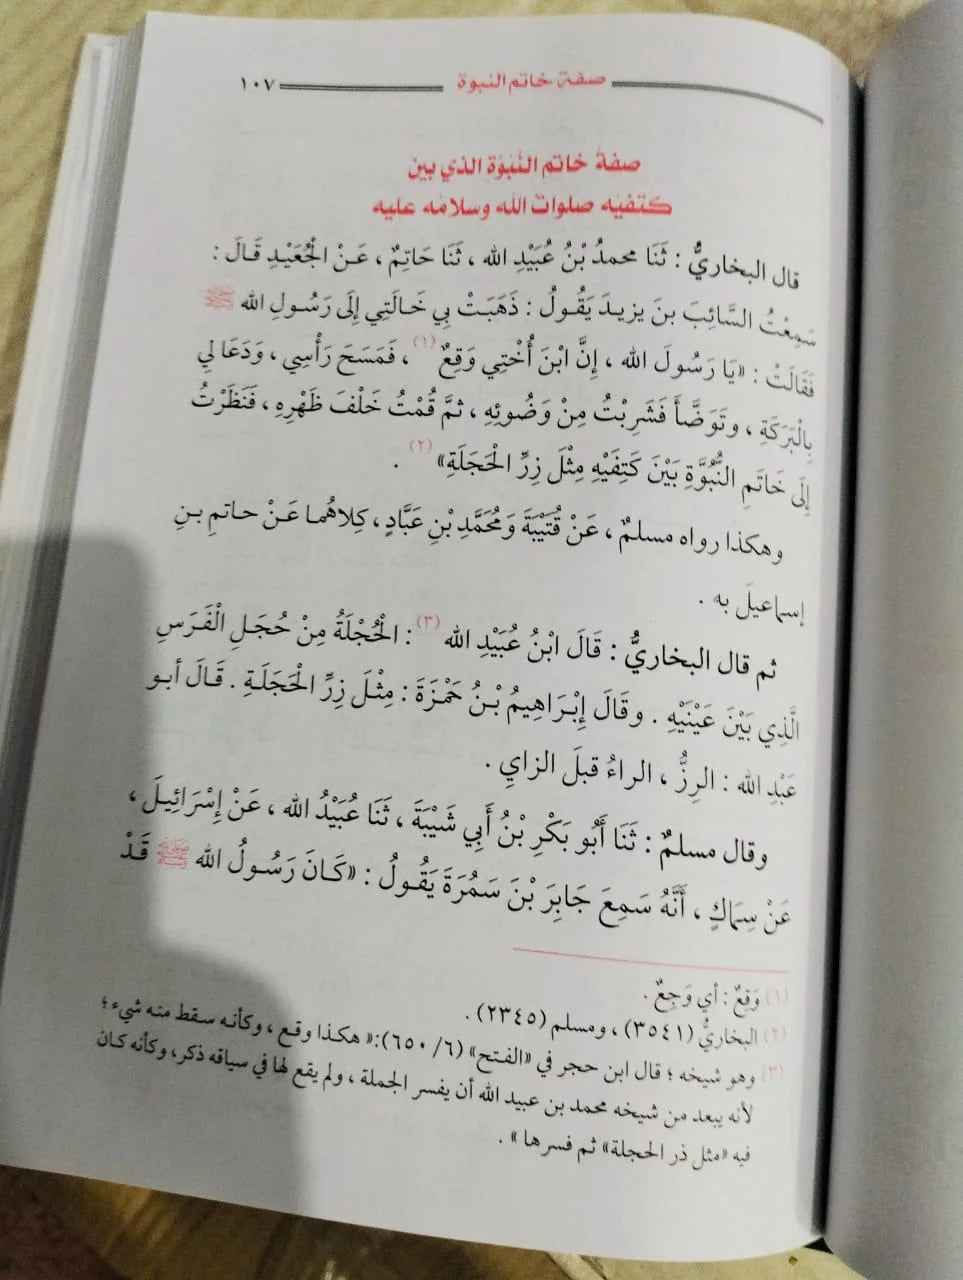 صفة خاتم النبوة ١٠٧
صفةُ خاتم النُّبوَّةِ الذي بين
كتفيْه صلواتُ الله وسلامُه عليه
قال البخاريُّ : ثَنَا محمدُ بْنُ عُبَيْدِ الله ، ثَنَا حَاتِمٌ ، عَنْ الْجُعَيْدِ قَالَ :
سَمِعْتُ السَّائِبَ بنَ يزيدَ يَقُولُ : ذَهَبَتْ بِي خَالَتِي إِلَى رَسُولِ الله ﷺ
فَقَالَتْ : «يَا رَسُولَ الله ، إِنَّ ابْنَ أُخْتِي وَقِعٌ (١) ، فَمَسَحَ رَأْسِي ، وَدَعَا لِي
بِالْبَرَكَةِ ، وتَوَضَّأَ فَشَرِبْتُ مِنْ وَضُوئِهِ ، ثمَّ قُمْتُ خَلْفَ ظَهْرِهِ ، فَنَظَرْتُ
إِلَى خَاتَمِ النُّبُوَّةِ بَيْنَ كَتِفَيْهِ مِثْلَ زِرِّ الْحَجَلَةِ» (٢) .
وهكذا رواه مسلمٌ ، عَنْ قُتَيْبَةَ وَمُحَمَّدِ بْنِ عَبَّادٍ ، كِلاهُما عَنْ حاتمِ بنِ
إسماعيلَ به .
ثم قال البخاريُّ : قَالَ ابْنُ عُبَيْدِ الله (٣) : الْحُجْلَةُ مِنْ حُجَلِ الْفَرَسِ
الَّذِي بَيْنَ عَيْنَيْهِ . وقَالَ إِبْرَاهِيمُ بْنُ حَمْزَةَ : مِثْلَ زِرِّ الْحَجَلَةِ . قَالَ أبو
عَبْدِ الله : الرِزُّ ، الراءُ قبلَ الزايِ .
وقال مسلمٌ : ثَنَا أَبُو بَكْرِ بْنُ أَبِي شَيْبَةَ ، ثَنَا عُبَيْدُ الله ، عَنْ إِسْرَائِيلَ ،
عَنْ سِمَاكٍ ، أَنَّهُ سَمِعَ جَابِرَ بْنَ سَمُرَةَ يَقُولُ : «كَانَ رَسُولُ الله ﷺ قَدْ
(١) وَقِعٌ : أي وَجِعٌ .
(٢) البخاريُّ (٣٥٤١) ، ومسلم (٢٣٤٥) .
(٣) وهو شيخه ؛ قال ابن حجر في «الفتح» (٦/ ٦٥٠):« هكذا وقع ، وكأنه سقط منه شيء ؛
لأنه يبعد من شيخه محمد بن عبيد الله أن يفسر الجملة ، ولم يقع لها في سياقه ذكر، وكأنه كان
فيه «مثل ذر الحجلة» ثم فسرها » .